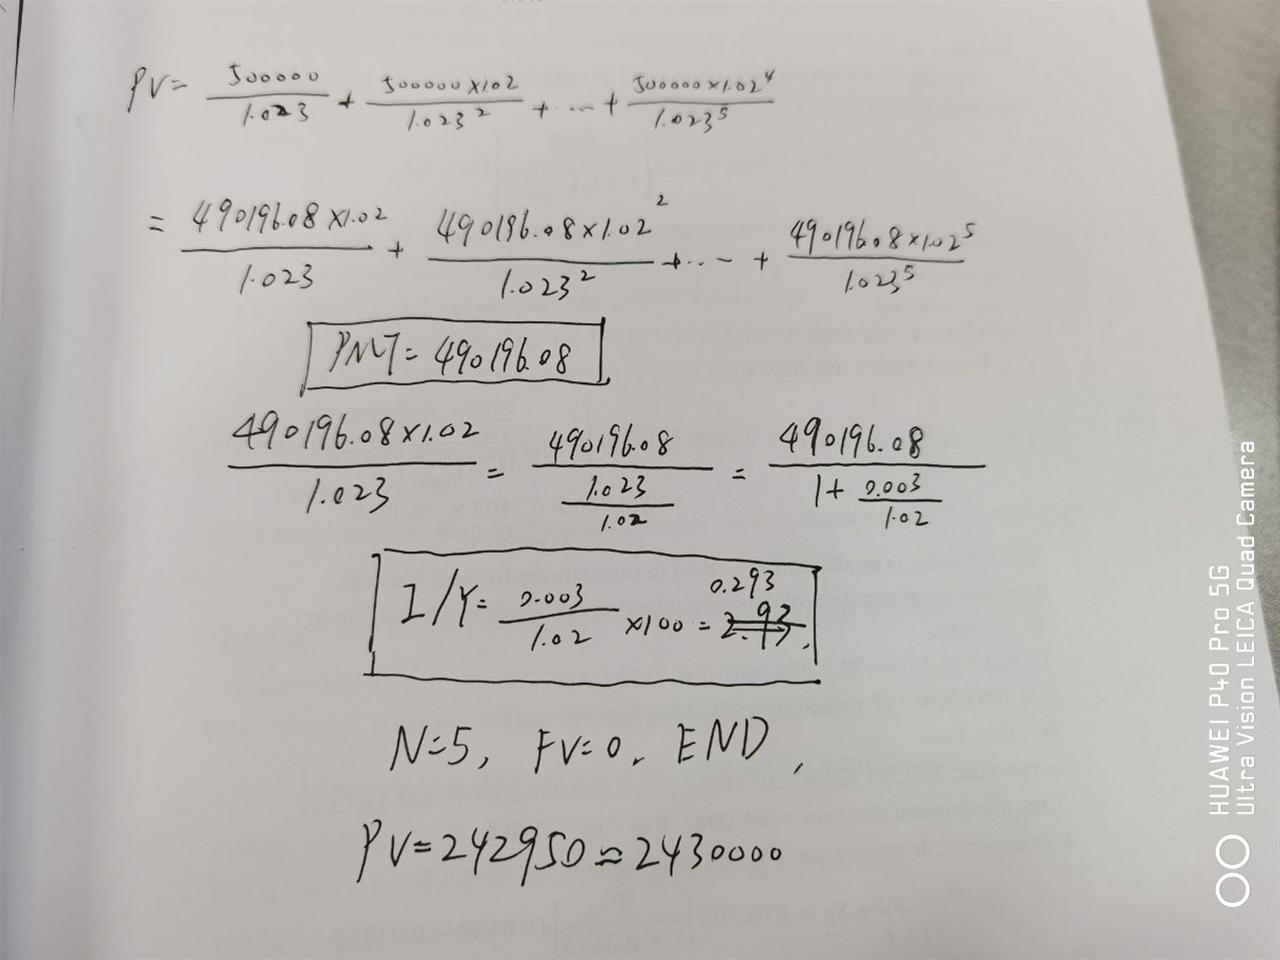 PV= 500000/1.023 + 500000×1.02/1.023² + ... + 500000×1.02⁴/1.023⁵
= 490196.08×1.02/1.023 + 490196.08×1.02²/1.023² + ... + 490196.08×1.02⁵/1.023⁵
PMT= 490196.08
490196.08×1.02/1.023 = 490196.08/(1.023/1.02) = 490196.08/(1+ 0.003/1.02)
I/Y= 0.003/1.02 ×100 = 2.93 0.293
N=5, FV=0, END,
PV=242950≈2430000
HUAWEI P40 Pro 5G
Ultra Vision LEICA Quad Camera